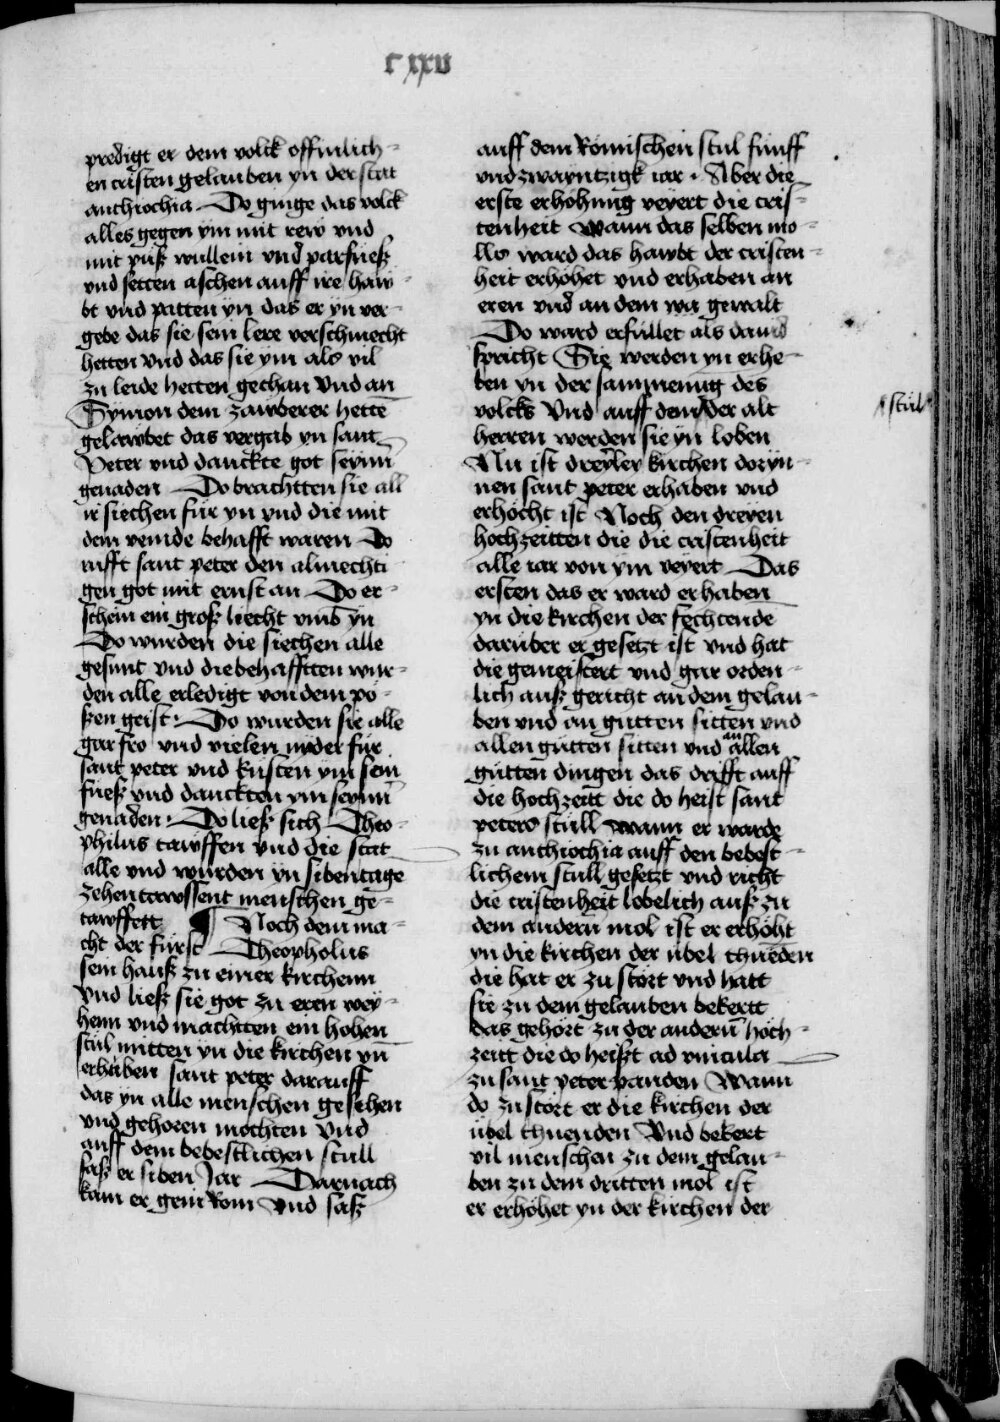 cxxv
predigt er dem volck offinlich-
en cristen gelauben yn der stat
anthiochia Do ginge das volck
alles gegen ym mit rew vnd
mit puß wullein vnd parfueß
vnd setten aschen auff ire haw-
bt vnd patten yn das er yn ver-
gebe das sie sein lere verschmecht
hetten vnd das sie ym als vil
zu leide hetten gethan vnd an
Symon dem zawberer hette
gelawbet das vergab yn sant
Peter vnd danckte got seynn
genaden Do brachtten sie all
ir siechen für yn vnd die mit
dem veinde behafft waren Do
rufft sant peter den almechti
gen got mit ernst an Do er-
schein ein groß liecht vmb yn
Do wurden die siechen alle
gesunt vnd die behafftten wur-
den alle erledigt von dem po-
ßen geist Do wurden sie alle
gar fro vnd vielen nyder für
sant peter vnd kusten ym sein
fueß vnd danckten ym seynn
genaden Do ließ sich Theo-
philus tawffen vnd die stat
alle vnd wurden yn siben tage
zehen tawssent menschen ge-
tawffett ¶ Noch dem ma-
cht der fürst Theopholus
sein hauß zu einer kirchenn
vnd ließ sie got zu eren wey-
henn vnd machtten ein hohen
stul mitten yn die kirchen vn
erhaben sant peter darauff
das yn alle menschen gesehen
vnd gehoren mochten vnd
auff dem bebestlichen stull
saß er siben Jar Darnach
kam er gein Rom vnd saß
auff dem Römischen stul funff
vnd zwayntzigk iar Aber die
erste erhöhung veyert die cris-
tenheit wann das selben mo-
lls ward das hawbt der cristen-
heit erhöhet vnd erhaben an
eren vnd an dem wa gewalt
Do ward erfüllet als dauid
spricht Sie werden yn erhe-
ben yn der sammenung des
volcks vnd auff dem der alt
stul
herren werden sie yn loben
Nu ist dreyler kirchen doryn-
nen sant peter erhaben vnd
erhöcht ist Noch den dreyen
hochzeitten die die cristenheit
alle iar von ym veyert Das
ersten das er ward erhaben
yn die kirchen der fechtende
daruber er gesetzt ist vnd hat
die gemeistert vnd gar orden-
lich auß gericht an dem gelau-
ben vnd an gutten sitten vnd
allen gutten sitten vnd an allen
gutten dingen das drifft auff
die hochzeitt die do heist sant
peters stull wann er warde
zu anthiochia auff den bebest-
lichem stull gesetzt vnd richt
die cristenheit lobelich auß zu
dem andern mol ist er erhöht
yn die kirchen der übel thueden
die hat er zu stort vnd hatt
sie zu dem gelauben bekertt
das gehört zu der andern höch-
zeitt die do heißt ad vincula
zu sant peter panden Wann
do zu stort er die kirchen der
übel thuenden vnd bekert
vil menschen zu dem gelau-
ben zu dem dritten mol ist
er erhöhet yn der kirchen der